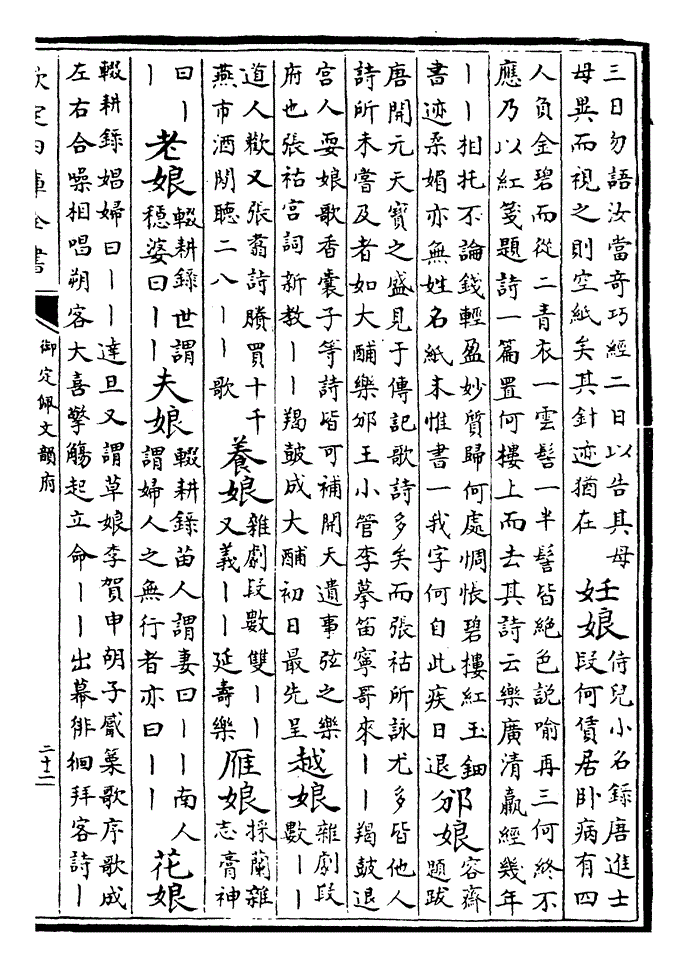 三日勿語汝當奇巧經二日以告其母
母異而視之則空紙矣其針迹猶在
妊娘
侍兒小名錄唐進士
段何賃居卧病有四
人負金碧而從二青衣一雲髻一半髻皆絕色説喻再三何終不
應乃以紅箋題詩一篇置何樓上而去其詩云樂廣清羸經幾年
丨丨相托不論錢輕盈妙質歸何處惆悵碧樓紅玉鈿
書迹柔媚亦無姓名紙末惟書一我字何自此疾日退
邠娘
容齋
題跋
唐開元天寳之盛見于傳記歌詩多矣而張祜所詠尤多皆他人
詩所未嘗及者如大酺樂邠王小管李摹笛寧哥來丨丨羯鼓退
宮人耍娘歌香囊子等詩皆可補開天遺事弦之樂
府也張祜宮詞新教丨丨羯鼓成大酺初日最先呈
越娘
雜劇段
數丨丨
道人歡又張翥詩賸買十千
燕市酒閙聽二八丨丨歌
養娘
雜劇段數雙丨丨
又義丨丨延壽樂
雁娘
採蘭雜
志膏神
曰丨
丨
老娘
輟耕錄世謂
穩婆曰丨丨
夫娘
輟耕錄苗人謂妻曰丨丨南人
謂婦人之無行者亦曰丨丨
花娘
輟耕錄娼婦曰丨丨達旦又謂草娘李賀申胡子觱篥歌序歌成
左右合噪相唱朔客大喜擎觴起立命丨丨出幕徘徊拜客詩丨
欽定四庫全書
御定佩文韻府
二十二